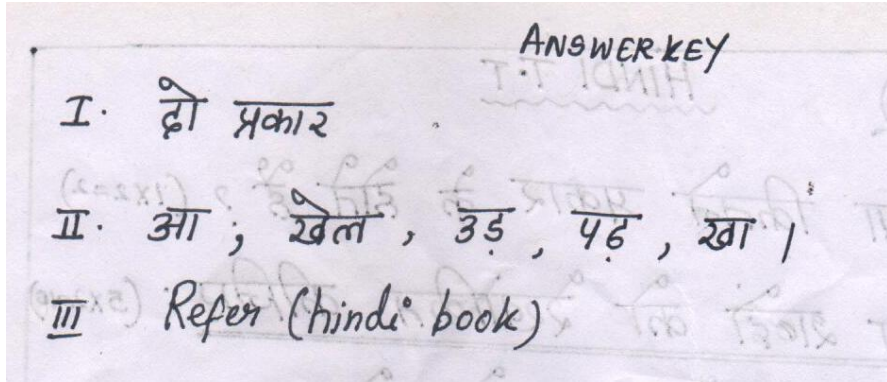 ANSWER KEY
I. दो प्रकार
II. आ, खेल, उड़, पढ़, खा।
III Refer (hindi book)